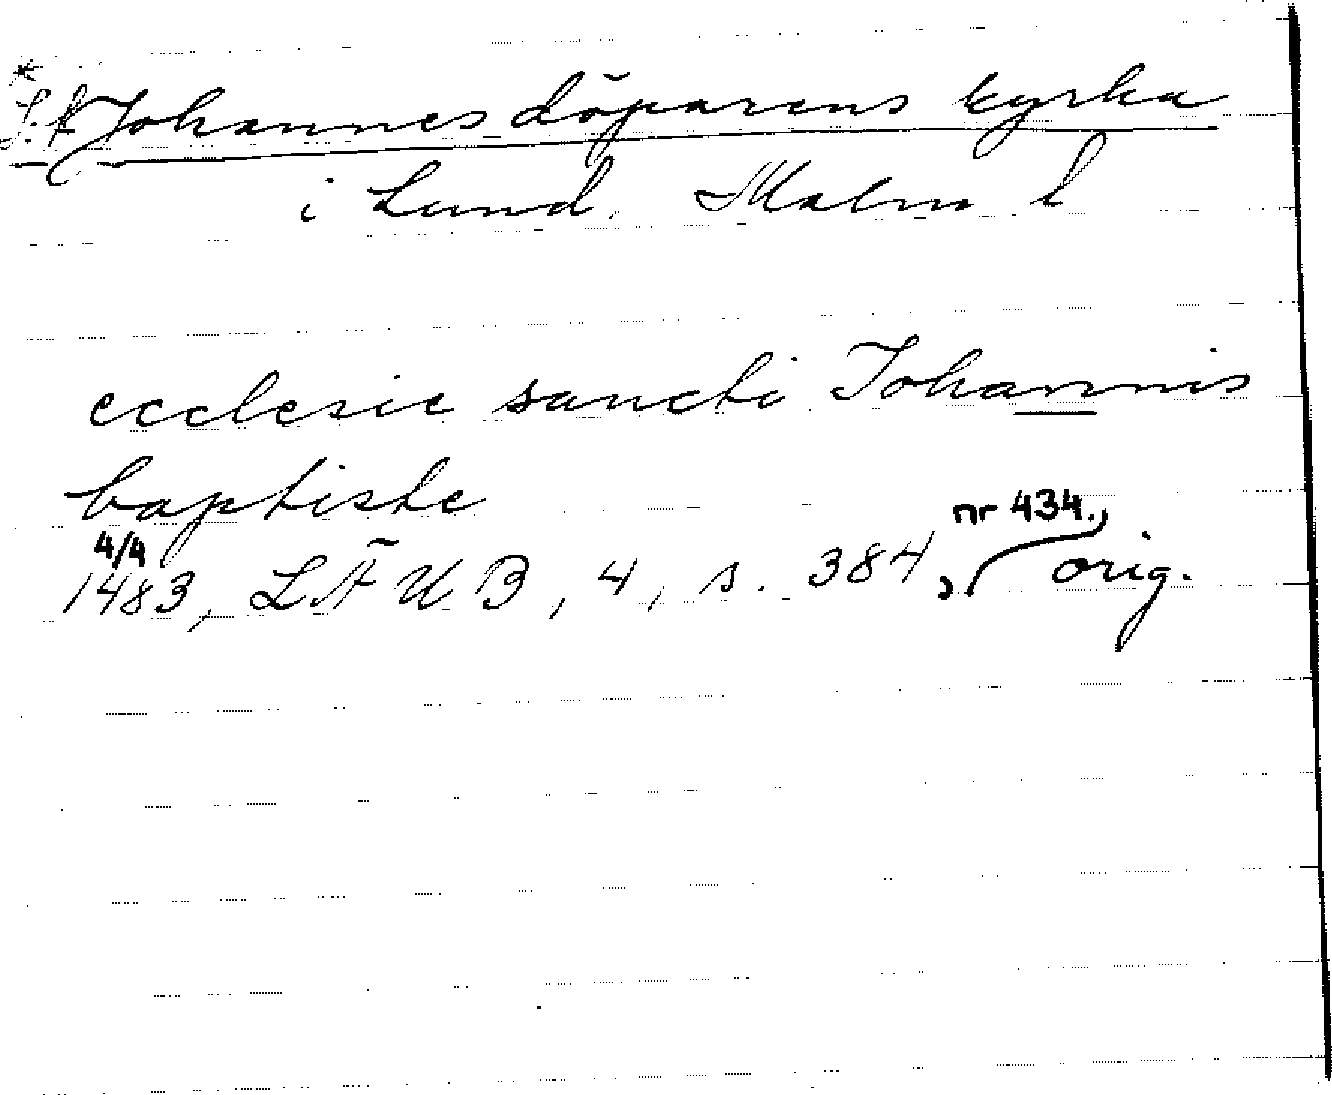 * S:t Johannes döparens kyrka
i Lund. Malm l
ecclesie sancti Johannis
baptiste
4/4 nr 434.,
1483, LÄUB, 4, s. 384, orig.